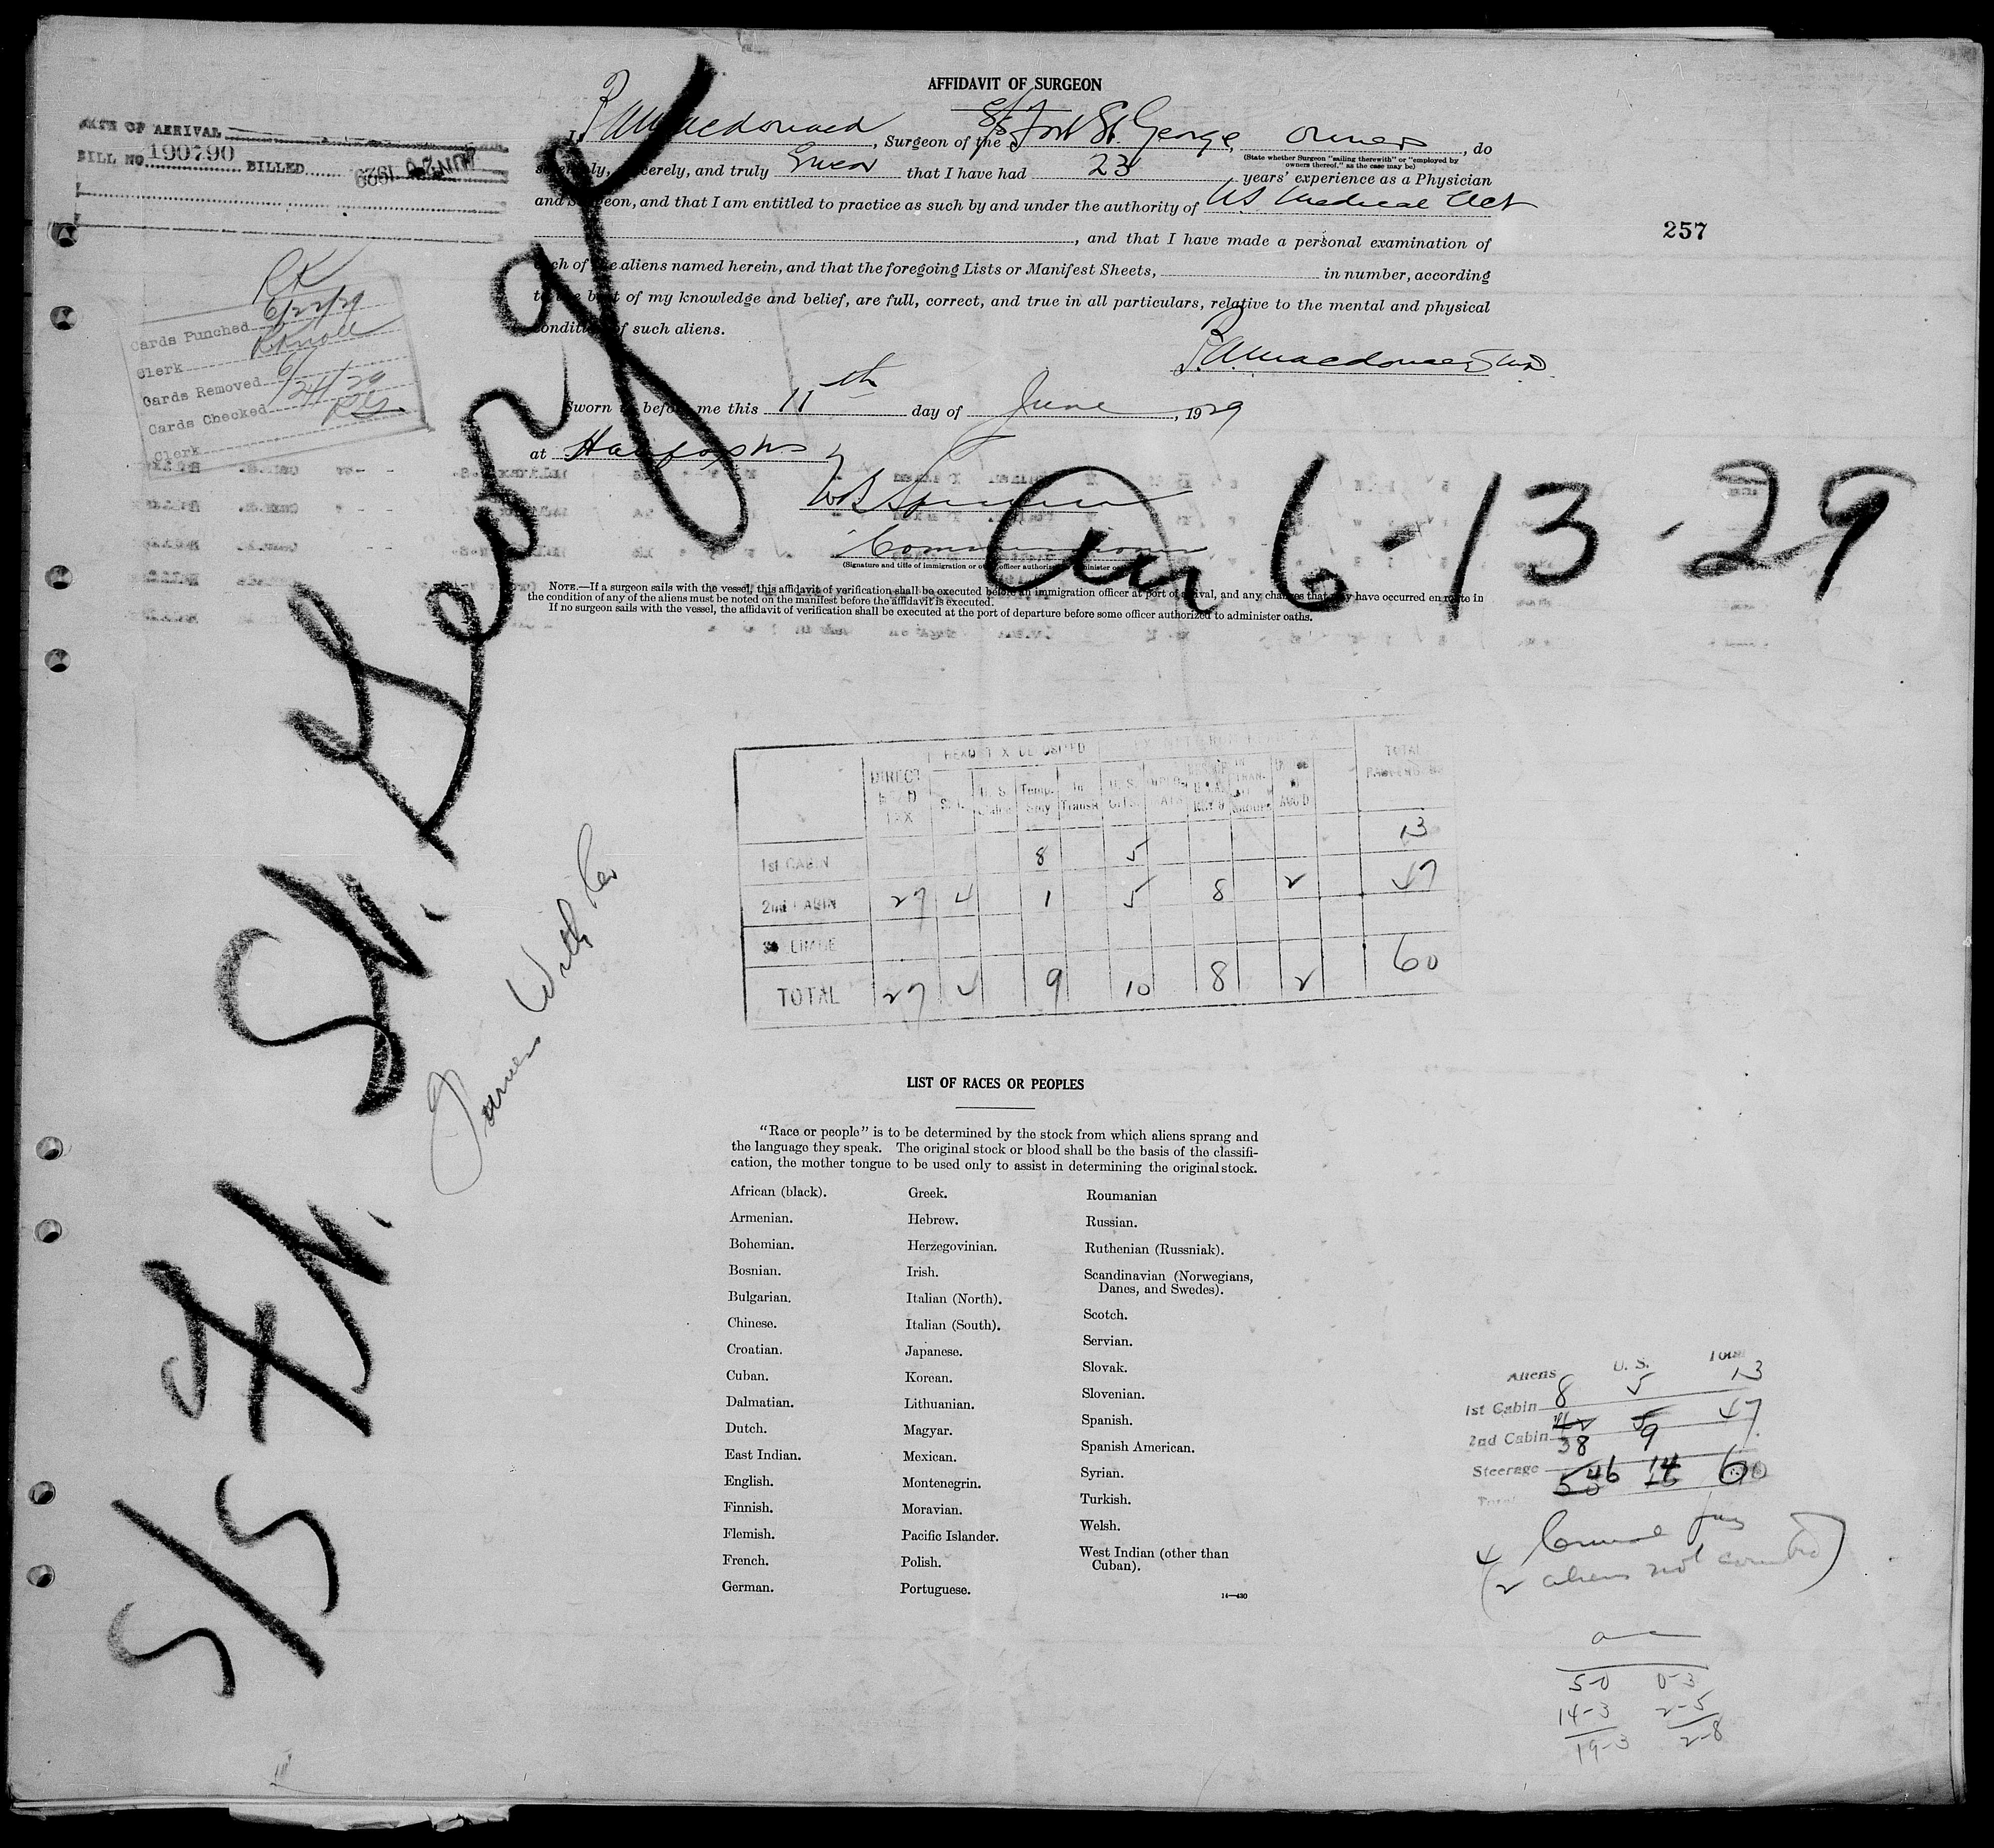 AFFIDAVIT OF SURGEON
DATE OF ARRIVAL
BILL NO. 190790 BILLED JUN 20 1929
I, Macdonald, Surgeon of the S/S Fort St. George, owners, do
(State whether Surgeon "sailing therewith" or "employed by
owners thereof," as the case may be)
solemnly, sincerely, and truly swear that I have had 23 years' experience as a Physician
and Surgeon, and that I am entitled to practice as such by and under the authority of Medical Act
, and that I have made a personal examination of
each of the aliens named herein, and that the foregoing Lists or Manifest Sheets, in number, according
to the best of my knowledge and belief, are full, correct, and true in all particulars, relative to the mental and physical
condition of such aliens.
Macdonald MD
257
RK
Cards Punched 6/22/29
Clerk
Cards Removed
Cards Checked 6/24/29
Clerk
Sworn to before me this 11th day of June, 1929
at Halifax NS
Commissioner
(Signature and title of immigration or other officer authorized to administer oaths)
Arr 6-13-29
NOTE.—If a surgeon sails with the vessel, this affidavit of verification shall be executed before an immigration officer at port of arrival, and any changes that may have occurred en route in
the condition of any of the aliens must be noted on the manifest before the affidavit is executed.
If no surgeon sails with the vessel, the affidavit of verification shall be executed at the port of departure before some officer authorized to administer oaths.
S/S Ft. St. George
HEAD TAX DEPOSITED EXEMPT FROM HEAD TAX
DIRECT HEAD TAX S.I. U.S. Temp. Stay In Transit U.S. CITS. TOTAL PASSENGERS
1st CABIN 8 5 13
2nd CABIN 27 4 1 5 8 2 47
TOTAL 27 4 9 10 8 2 60
LIST OF RACES OR PEOPLES
"Race or people" is to be determined by the stock from which aliens sprang and
the language they speak. The original stock or blood shall be the basis of the classifi-
cation, the mother tongue to be used only to assist in determining the original stock.
African (black).
Armenian.
Bohemian.
Bosnian.
Bulgarian.
Chinese.
Croatian.
Cuban.
Dalmatian.
Dutch.
East Indian.
English.
Finnish.
Flemish.
French.
German.
Greek.
Hebrew.
Herzegovinian.
Irish.
Italian (North).
Italian (South).
Japanese.
Korean.
Lithuanian.
Magyar.
Mexican.
Montenegrin.
Moravian.
Pacific Islander.
Polish.
Portuguese.
Roumanian
Russian.
Ruthenian (Russniak).
Scandinavian (Norwegians,
Danes, and Swedes).
Scotch.
Servian.
Slovak.
Slovenian.
Spanish.
Spanish American.
Syrian.
Turkish.
Welsh.
West Indian (other than
Cuban).
14—430
Aliens U. S. Total
1st Cabin 8 5 13
2nd Cabin 38 9 47
Steerage
Total 46 14 60
4
(2 aliens not counted)
5-0 0-3
14-3 2-5
19-3 2-8